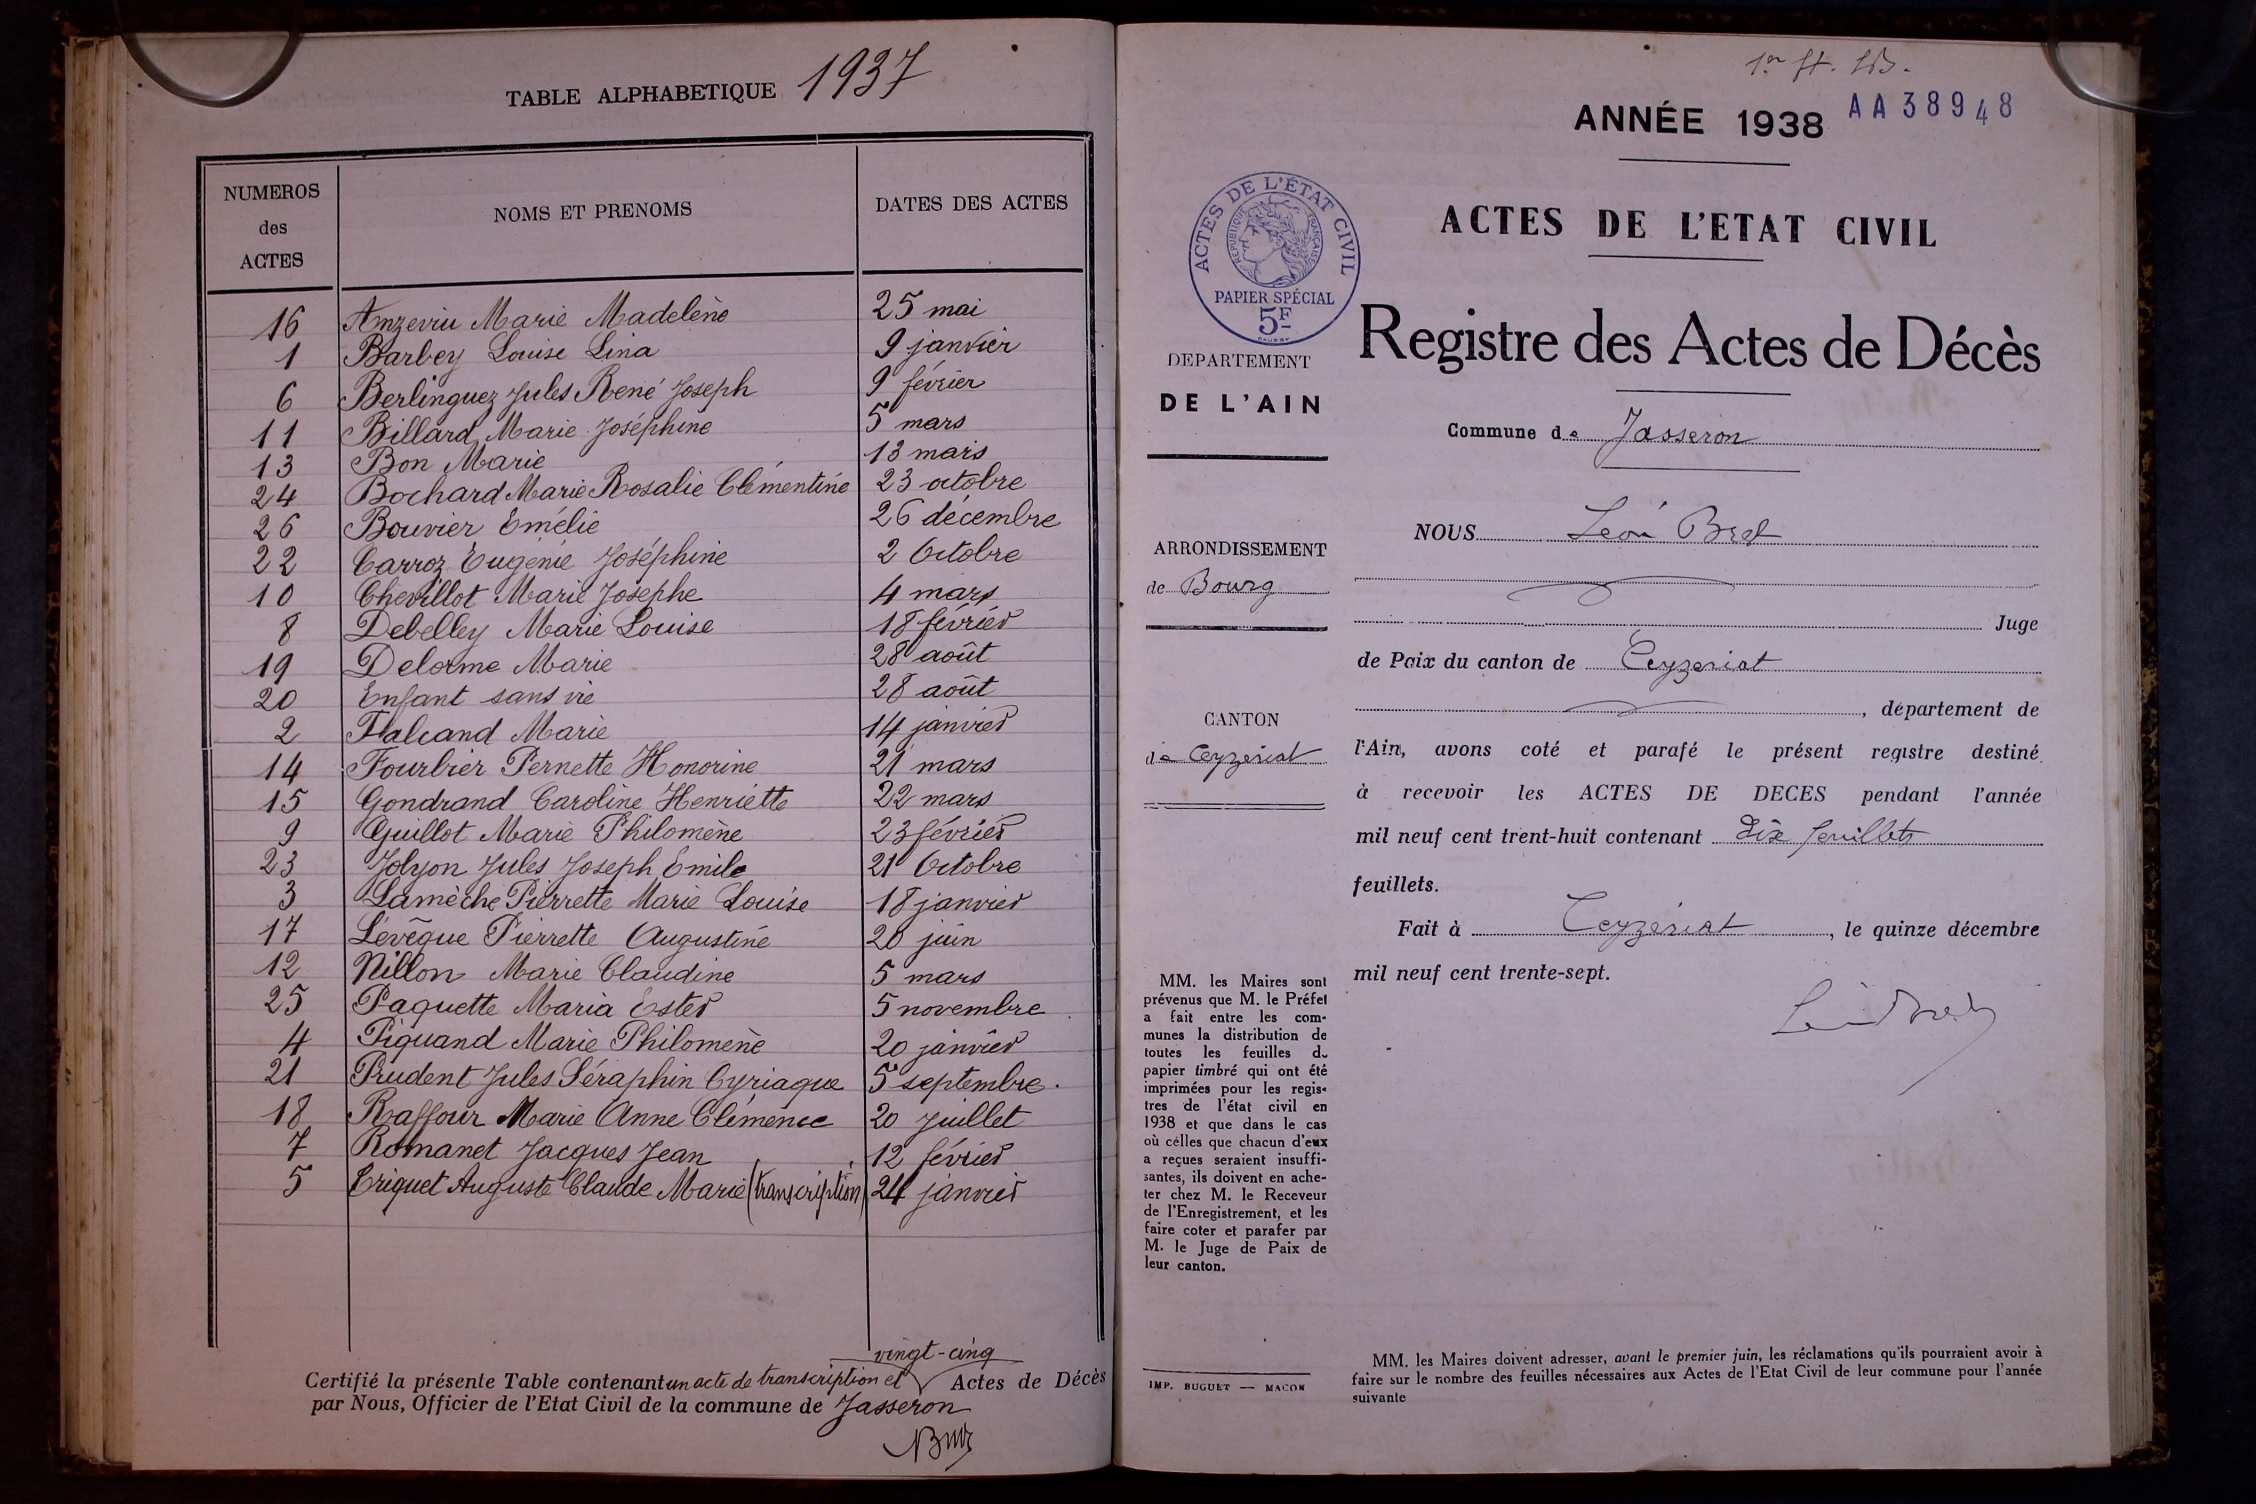 TABLE ALPHABETIQUE 1937
NUMEROS
des
ACTES
NOMS ET PRENOMS
DATES DES ACTES
16 Amzeviu Marie Madelène 25 mai
1 Barbey Louise Lina 9 janvier
6 Berlinguez Jules René Joseph 9 février
11 Billard Marie Joséphine 5 mars
13 Bon Marie 13 mars
24 Bochard Marie Rosalie Clémentine 23 octobre
26 Bouvier Emélie 26 décembre
22 Carroz Eugénie Joséphine 2 Octobre
10 Chevillot Marie Josephe 4 mars
8 Debelley Marie Louise 18 février
19 Delorme Marie 28 août
20 Enfant sans vie 28 août
2 Falcand Marie 14 janvier
14 Fourbier Pernette Honorine 21 mars
15 Gondrand Caroline Henriette 22 mars
9 Guillot Marie Philomène 23 février
23 Jolyon Jules Joseph Emile 21 Octobre
3 Lamèche Pierrette Marie Louise 18 janvier
17 Lévêque Pierrette Augustine 20 juin
12 Nillon Marie Claudine 5 mars
25 Paquette Maria Ester 5 novembre
4 Piquand Marie Philomène 20 janvier
21 Prudent Jules Séraphin Cyriaque 5 septembre.
18 Raffour Marie Anne Clémence 20 Juillet
7 Romanet Jacques Jean 12 février
5 Triquet Auguste Claude Marie (transcription) 24 janvier
vingt-cinq
Certifié la présente Table contenant un acte de transcription et Actes de Décès
par Nous, Officier de l'Etat Civil de la commune de Jasseron
ANNÉE 1938 AA38948
ACTES DE L'ÉTAT CIVIL
RÉPUBLIQUE FRANÇAISE
PAPIER SPÉCIAL
5F
ACTES DE L'ETAT CIVIL
Registre des Actes de Décès
DEPARTEMENT
DE L'AIN
Commune de Jasseron
ARRONDISSEMENT
de Bourg
CANTON
de Ceyzeriat
NOUS Léon Bret
Juge
de Paix du canton de Ceyzeriat
, département de
l'Ain, avons coté et parafé le présent registre destiné
à recevoir les ACTES DE DECES pendant l'année
mil neuf cent trent-huit contenant dix feuillets
feuillets.
Fait à Ceyzériat, le quinze décembre
mil neuf cent trente-sept.
MM. les Maires sont
prévenus que M. le Préfet
a fait entre les com-
munes la distribution de
toutes les feuilles du
papier timbré qui ont été
imprimées pour les regis-
tres de l'état civil en
1938 et que dans le cas
où celles que chacun d'eux
a reçues seraient insuffi-
santes, ils doivent en ache-
ter chez M. le Receveur
de l'Enregistrement, et les
faire coter et parafer par
M. le Juge de Paix de
leur canton.
IMP. BUGUET — MACON
MM. les Maires doivent adresser, avant le premier juin, les réclamations qu'ils pourraient avoir à
faire sur le nombre des feuilles nécessaires aux Actes de l'Etat Civil de leur commune pour l'année
suivante